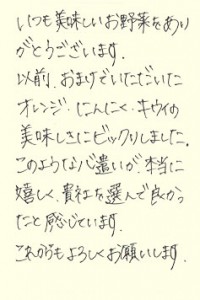 いつも美味しいお野菜をあり
がとうございます.
以前、おまけでいただいた
オレンジ・にんにく・キウイの
美味しさにビックリしました。
このような心遣いが、本当に
嬉しく、貴社を選んで良かっ
たなと感じています.
これからもよろしくお願いします.